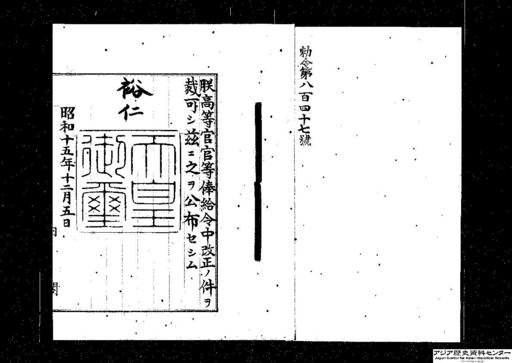 勅令第八百四十七號
朕高等官官等俸給令中改正ノ件ヲ
裁可シ茲ニ之ヲ公布セシム
裕仁
天皇
御璽
昭和十五年十二月五日
アジア歴史資料センター
Japan Center for Asian Historical Records